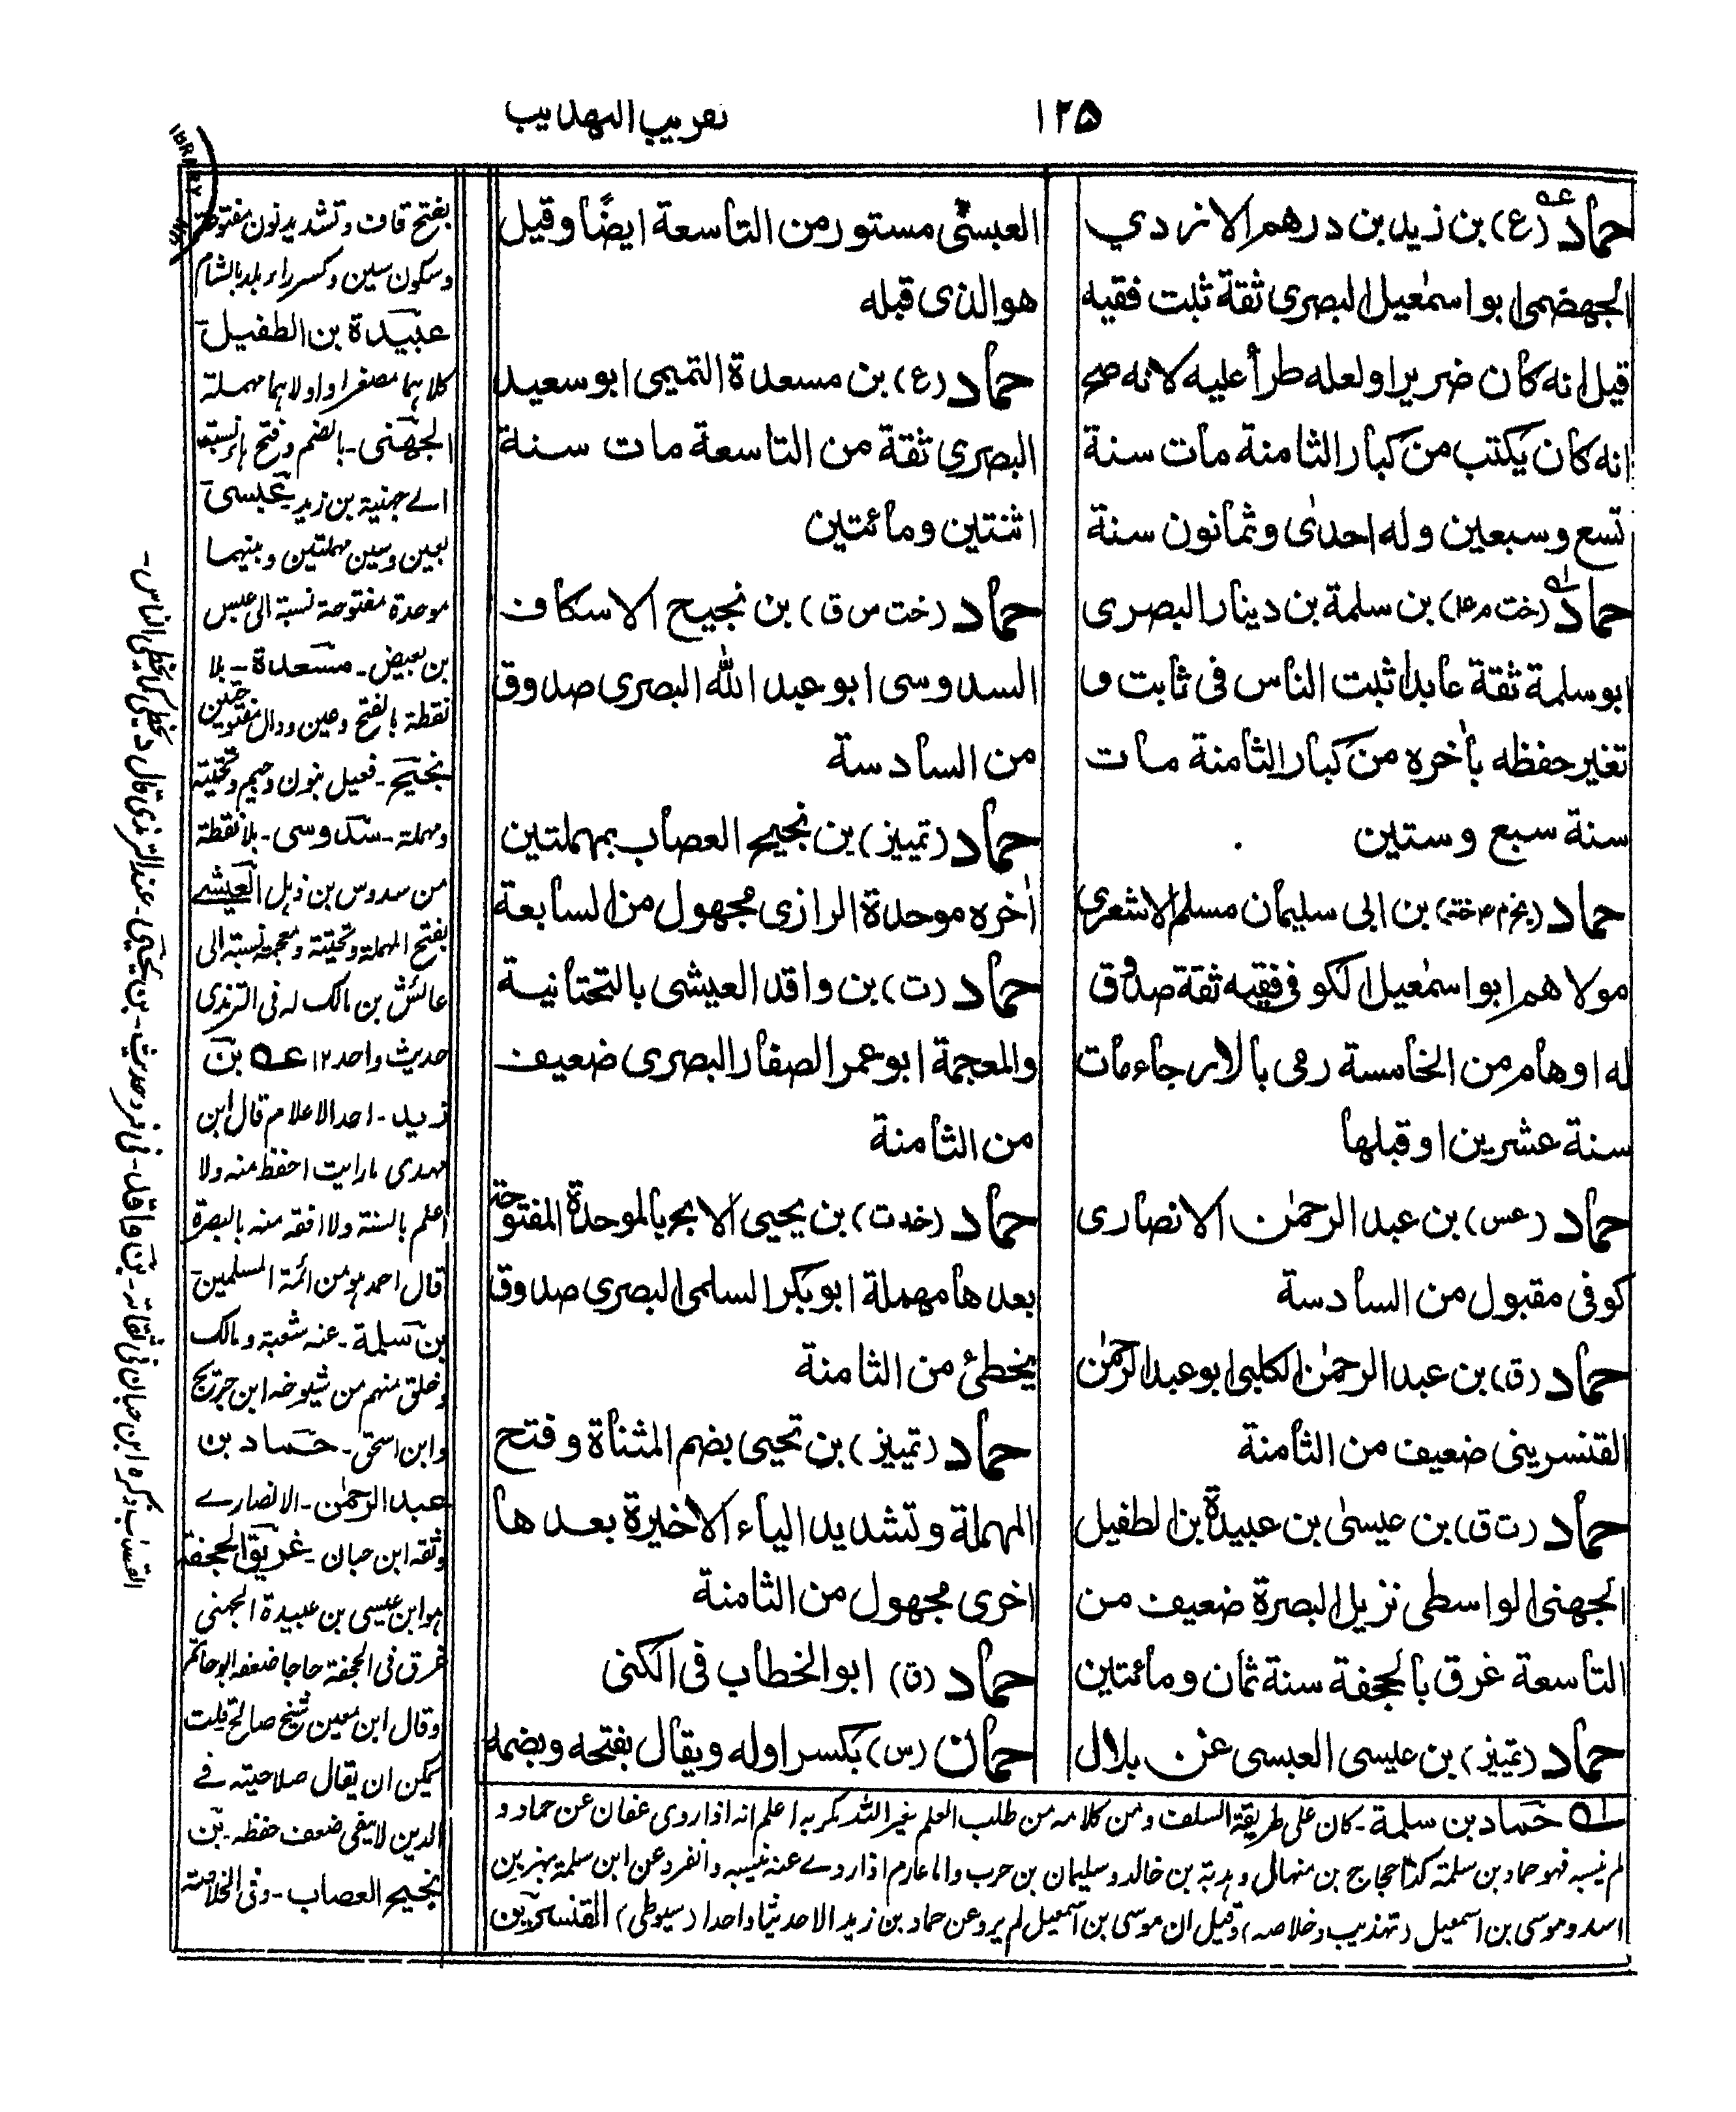 ١٢٥
تقريب التهذيب
حماد (ع) بن زيد بن درهم الازدي
الجهضمى ابو اسمٰعيل البصرى ثقة ثبت فقيه
قيل انه كان ضريرا ولعله طرأ عليه لانه صح
انه كان يكتب من كبار الثامنة مات سنة
تسع وسبعين وله احدىٰ وثمانون سنة
حماد (خت م عه) بن سلمة بن دينار البصرى
ابو سلمة ثقة عابد اثبت الناس فى ثابت و
تغير حفظه بأخره من كبار الثامنة مات
سنة سبع وستين
حماد (بخ م عه) بن ابى سليمان مسلم الاشعرى
مولاهم ابو اسمٰعيل الكوفى فقيه ثقة صدوق
له اوهام من الخامسة رمى بالارجاء مات
سنة عشرين او قبلها
حماد (عس) بن عبد الرحمٰن الانصارى
كوفى مقبول من السادسة
حماد (ق) بن عبد الرحمٰن الكلبى ابو عبد الرحمٰن
القنسرينى ضعيف من الثامنة
حماد (ت ق) بن عيسىٰ بن عبيدة بن الطفيل
الجهنى الواسطى نزيل البصرة ضعيف من
التاسعة غرق بالجحفة سنة ثمان ومائتين
حماد (تمييز) بن عيسى العبسى عن بلال
العبسى مستور من التاسعة ايضًا وقيل
هو الذى قبله
حماد (ع) بن مسعدة التميمى ابو سعيد
البصرى ثقة من التاسعة مات سنة
اثنتين ومائتين
حماد (خت س ق) بن نجيح الاسكاف
السدوسى ابو عبد الله البصرى صدوق
من السادسة
حماد (تمييز) بن نجيح العصاب بمهملتين
اٰخره موحدة الرازى مجهول من السابعة
حماد (ت) بن واقد العيشى بالتحتانية
والمعجمة ابو عمر الصفار البصرى ضعيف
من الثامنة
حماد (خد ت) بن يحيى الابح بالموحدة المفتوحة
بعدها مهملة ابو بكر السلمى البصرى صدوق
يخطئ من الثامنة
حماد (تمييز) بن تحيى بضم المثناة وفتح
المهملة وتشديد الياء الاخيرة بعدها
اخرى مجهول من الثامنة
حماد (ق) ابو الخطاب فى الكنى
حمان (س) بكسر اوله ويقال بفتحه وبضمه
بفتح قاف وتشديد نون مفتوحة
وسكون سين وكسر راء بلد بالشام
عبيدة بن الطفيل
كلاهما مصغر اواولاهما مهملة
الجهنى - بالضم وفتح هاء نسبة
الے جهنية بن زيد - عبسى
بعين وسين مهملتين وبينهما
موحدة مفتوحة نسبة الى عبس
بن بغيض - مسعدة - بلا
نقطة بالفتح وعين ودال مفتوحتين
نجيح - فعيل بنون وجيم وتحتية
ومهملة - سدوسى - بلا نقطة
من سدوس بن ذهل العيشے
بفتح المهملة وتحتية ومعجمة نسبة الى
عائش بن مالك له فى الترمذى
حديث واحد ١٢ عه بن
زيد - احد الاعلام قال ابن
مهدى مارايت احفظ منه ولا
اعلم بالسنة ولا افقه منه بالبصرة
قال احمد هو من ائمة المسلمين
بن سلمة - عنه شعبة ومالك
وخلق منهم من شيوخه ابن جريج
وابن اسحق - حماد بن
عبد الرحمٰن - الانصارے
وثقه ابن حبان - غريق الجحفة
هو ابن عيسى بن عبيدة الجهنى
غرق فى الجحفة حاجا ضعفه ابو حاتم
وقال ابن معين شيخ صالح قلت
يمكن ان يقال صلاحيته فے
الدين لا ينفى ضعف حفظه - بن
نجيح العصاب - وفى الخلاصة
القصاب ذكره ابن حبان فى ثقاته - بن واقد - فى فرد حديث - بن يحيى - عند الترمذى قال ديخطى كما يخطى الناس -
له حماد بن سلمة - كان على طريقة السلف ومن كلامه من طلب العلم لغير الله مكر به اعلم انه اذا روى عفان عن حماد و
لم ينسبه فهو حماد بن سلمة كذا حجاج بن منهال وهدبة بن خالد وسليمان بن حرب واما عارم اذا روے عنه نسبه وانفرد عن ابن سلمة بهز بن
اسد وموسى بن اسمعيل (تهذيب وخلاصه) وقيل ان موسى بن اسمعيل لم يرو عن حماد بن زيد الا حديثا واحدا (سيوطى) القنسرين